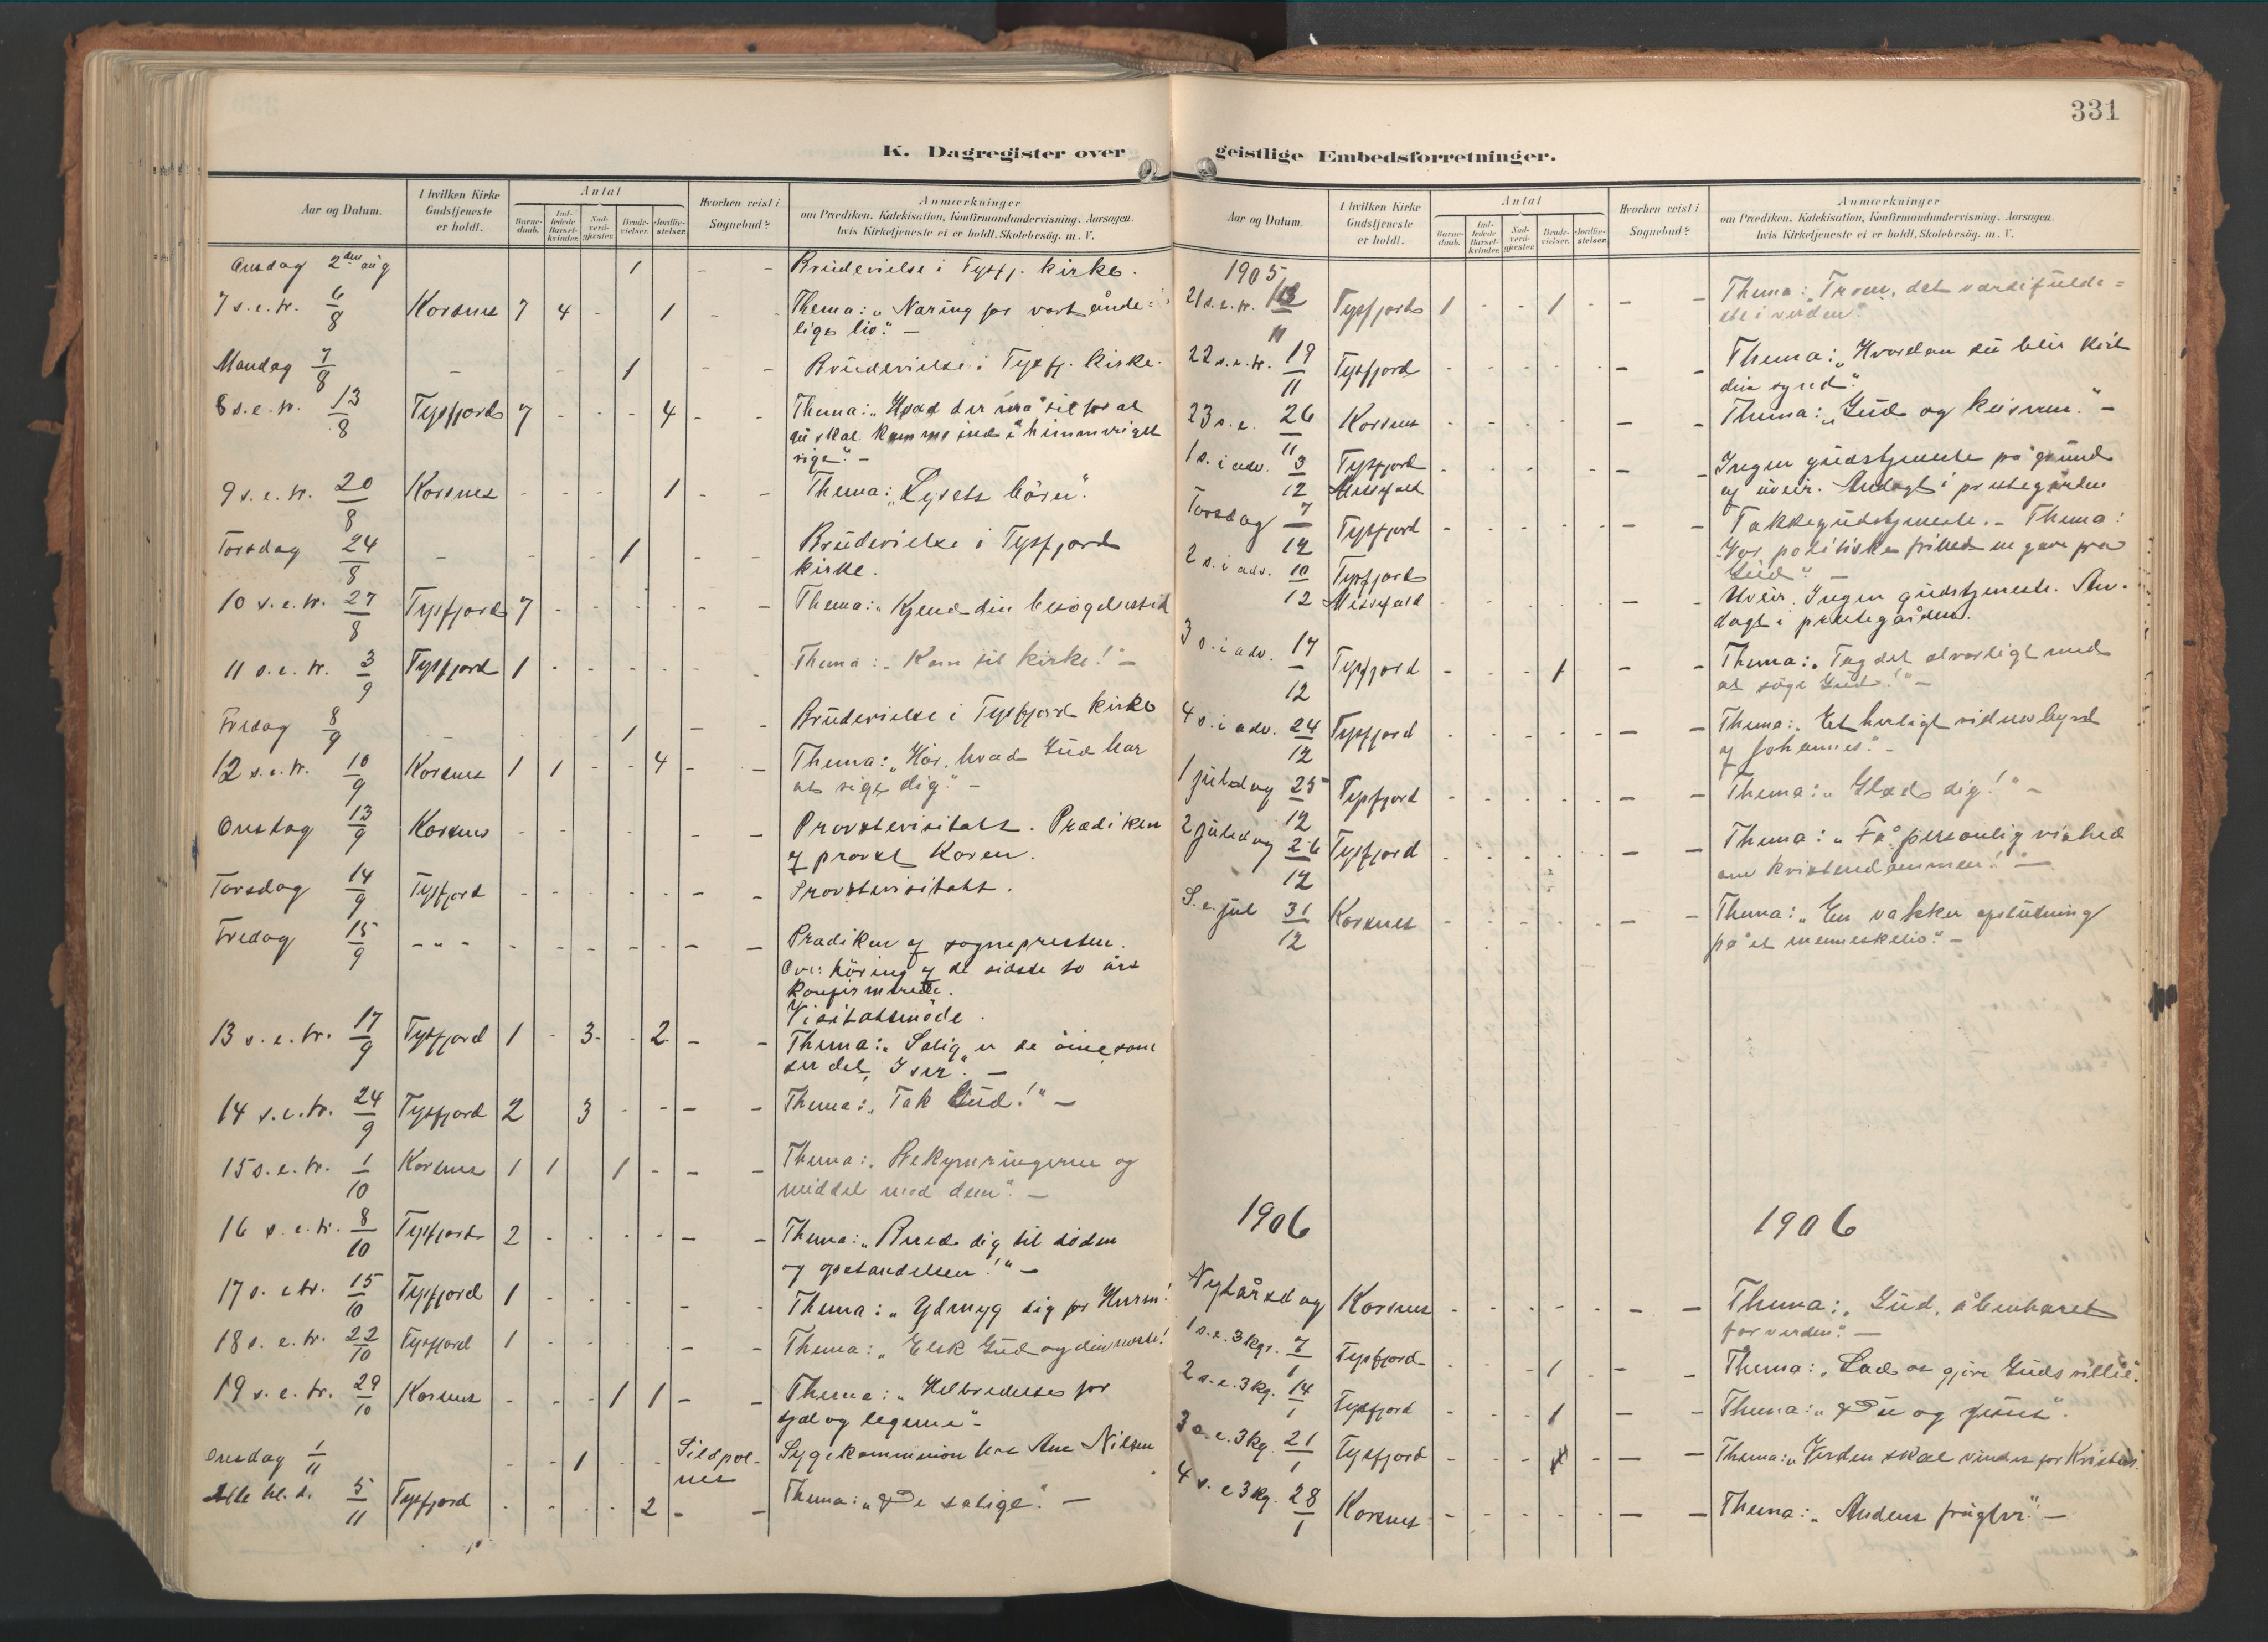 331
K. Dagregister over geistlige Embedsforretninger.
Aar og Datum. I hvilken Kirke Gudstjeneste er holdt. Antal Barnedaab. Indledede Barselkvinder. Nadverdgjester. Brudevielser. Jordfæstelser. Hvorhen reist i Sognebud? Anmærkninger om Prædiken, Katekisation, Konfirmandundervisning, Aarsagen, hvis Kirketjeneste ei er holdt, Skolebesög, m. V.
Onsdag 2den aug 1 - - Brudevielse i Tysfj. kirke.
7 s.e.tr. 6/8 Korsnes 7 4 - 1 - - Thema: „Næring for vort ånde=
lige liv." —
Mandag 7/8 - - 1 - - Brudevielse i Tysfj. kirke.
8 s.e.tr. 13/8 Tysfjord 7 - - - 4 - - Thema: „Hvad der må til for at
du skal komme ind i himmeriges
rige." —
9 s.e.tr. 20/8 Korsnes - - - - 1 - - Thema: „Lysets börn".
Torsdag 24/8 - - - 1 - - Brudevielse i Tysfjord
kirke.
10 s.e.tr. 27/8 Tysfjord 7 - - - - - - Thema: „Kjend din besögelsestid
11 s.e.tr. 3/9 Tysfjord 1 - - - - - - Thema: „Kom til kirke!" —
Fredag 8/9 - - - 1 - - Brudevielse i Tysfjord kirke
12 s.e.tr. 10/9 Korsnes 1 1 - - 4 - - Thema: „Hör, hvad Gud har
at sige dig." —
Onsdag 13/9 Korsnes - - - - - - - Provstevisitats. Prædiken
af provst Koren.
Torsdag 14/9 Tysfjord - - - - - - - Provstevisitats.
Fredag 15/9 - „ - - - - - - - - Prædiken af sognepresten.
Overhöring af de sidste to års
konfirmerede.
Visitatsmöde.
13 s.e.tr. 17/9 Tysfjord 1 - 3 - 2 - - Thema: „Salig er de öine, som
ser det, I ser." —
14 s.e.tr. 24/9 Tysfjord 2 3 - - - - Thema: „Tak Gud!" —
15 s.e.tr. 1/10 Korsnes 1 1 1 - - - Thema: „Bekymringerne og
middel mod dem". —
16 s.e.tr. 8/10 Tysfjord 2 - - - - - - Thema: „Bered dig til döden
og opstandelsen!" —
17 s.e.tr. 15/10 Tysfjord 1 - - - - - - Thema: „Ydmyg dig for Herren!
18 s.e.tr. 22/10 Tysfjord 1 - - - - - - Thema: „Elsk Gud og din næste!
19 s.e.tr. 29/10 Korsnes - - - 1 1 - - Thema: „Helbredelse for
sjæl og legeme" -
Onsdag 1/11 - - 1 - - Sygekommunion hos Ane Nilsen
Alle hl. d. 5/11 Tysfjord - - - - 2 - - Thema: „De salige". —
1905
21 s.e.tr. 12/11 Tysfjord 1 - - 1 - - - Thema: „Troen, det værdifulde=
ste i verden."
22 s.e.tr. 19/11 Tysfjord - - - - - - - Thema: „Hvordan du blir kvit
din synd".
23 s.e. 26/11 Korsnes - - - - - - - Thema: „Gud og keiseren." —
1 s. i adv. 3/12 Tysfjord Messefald - - - - - - - Ingen gudstjeneste på grund
af uveir. Andagt i prestegården
Torsdag 7/12 Tysfjord - - - - - - - Takkegudstjeneste. - Thema:
Vor politiske frihed en gave fra
Gud".
2 s. i adv. 10/12 Tysfjord Messefald - - - - - - - Uveir. Ingen gudstjeneste. An-
dagt i prestegården.
3 s. i adv. 17/12 Tysfjord - - - 1 - - - Thema: „Tag det alvorligt med
at söge Gud!" —
4 s. i adv. 24/12 Tysfjord - - - - - - - Thema: „Et herligt vidnesbyrd
af Johannes." -
1 juledag 25/12 Tysfjord - - - - - - - Thema: „Glæd dig!" —
2 juledag 26/12 Tysfjord - - - - - - - Thema: „Få personlig vished
om kristendommen!" —
S. e. jul 31/12 Korsnes - - - - - - - Thema: „En vakker afslutning
på et menneskeliv." —
1906 1906
Nytårsdag Korsnes - - - - - - - Thema: „Gud, åbenbaret
for verden." —
1 s.e. 3 kgr. 7/1 Tysfjord - - - 1 - - - Thema: „Lad os gjöre Guds villie".
2 s.e. 3 kg. 14/1 Tysfjord - - - 1 - - - Thema: „Du og Jesus".
3 s.e. 3 kg. 21/1 Tysfjord - - - - - - Thema: „Verden skal vindes for Kristus".
4 s.e. 3 kg. 28/1 Korsnes - - - - - - - Thema: „Åndens frugter." —